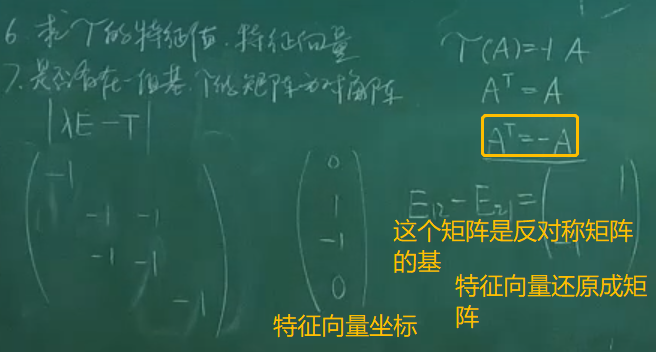 6. 求 T 的特征值. 特征向量
7. 是否存在一组基, T的矩阵为对角阵
|λE-T|
-1
-1 -1
-1 -1
-1
0
1
-1
0
特征向量坐标
T(A)=-1 A
Aᵀ=A
Aᵀ=-A
E₁₂-E₂₁=( 1
-1 )
这个矩阵是反对称矩阵
的基
特征向量还原成矩
阵